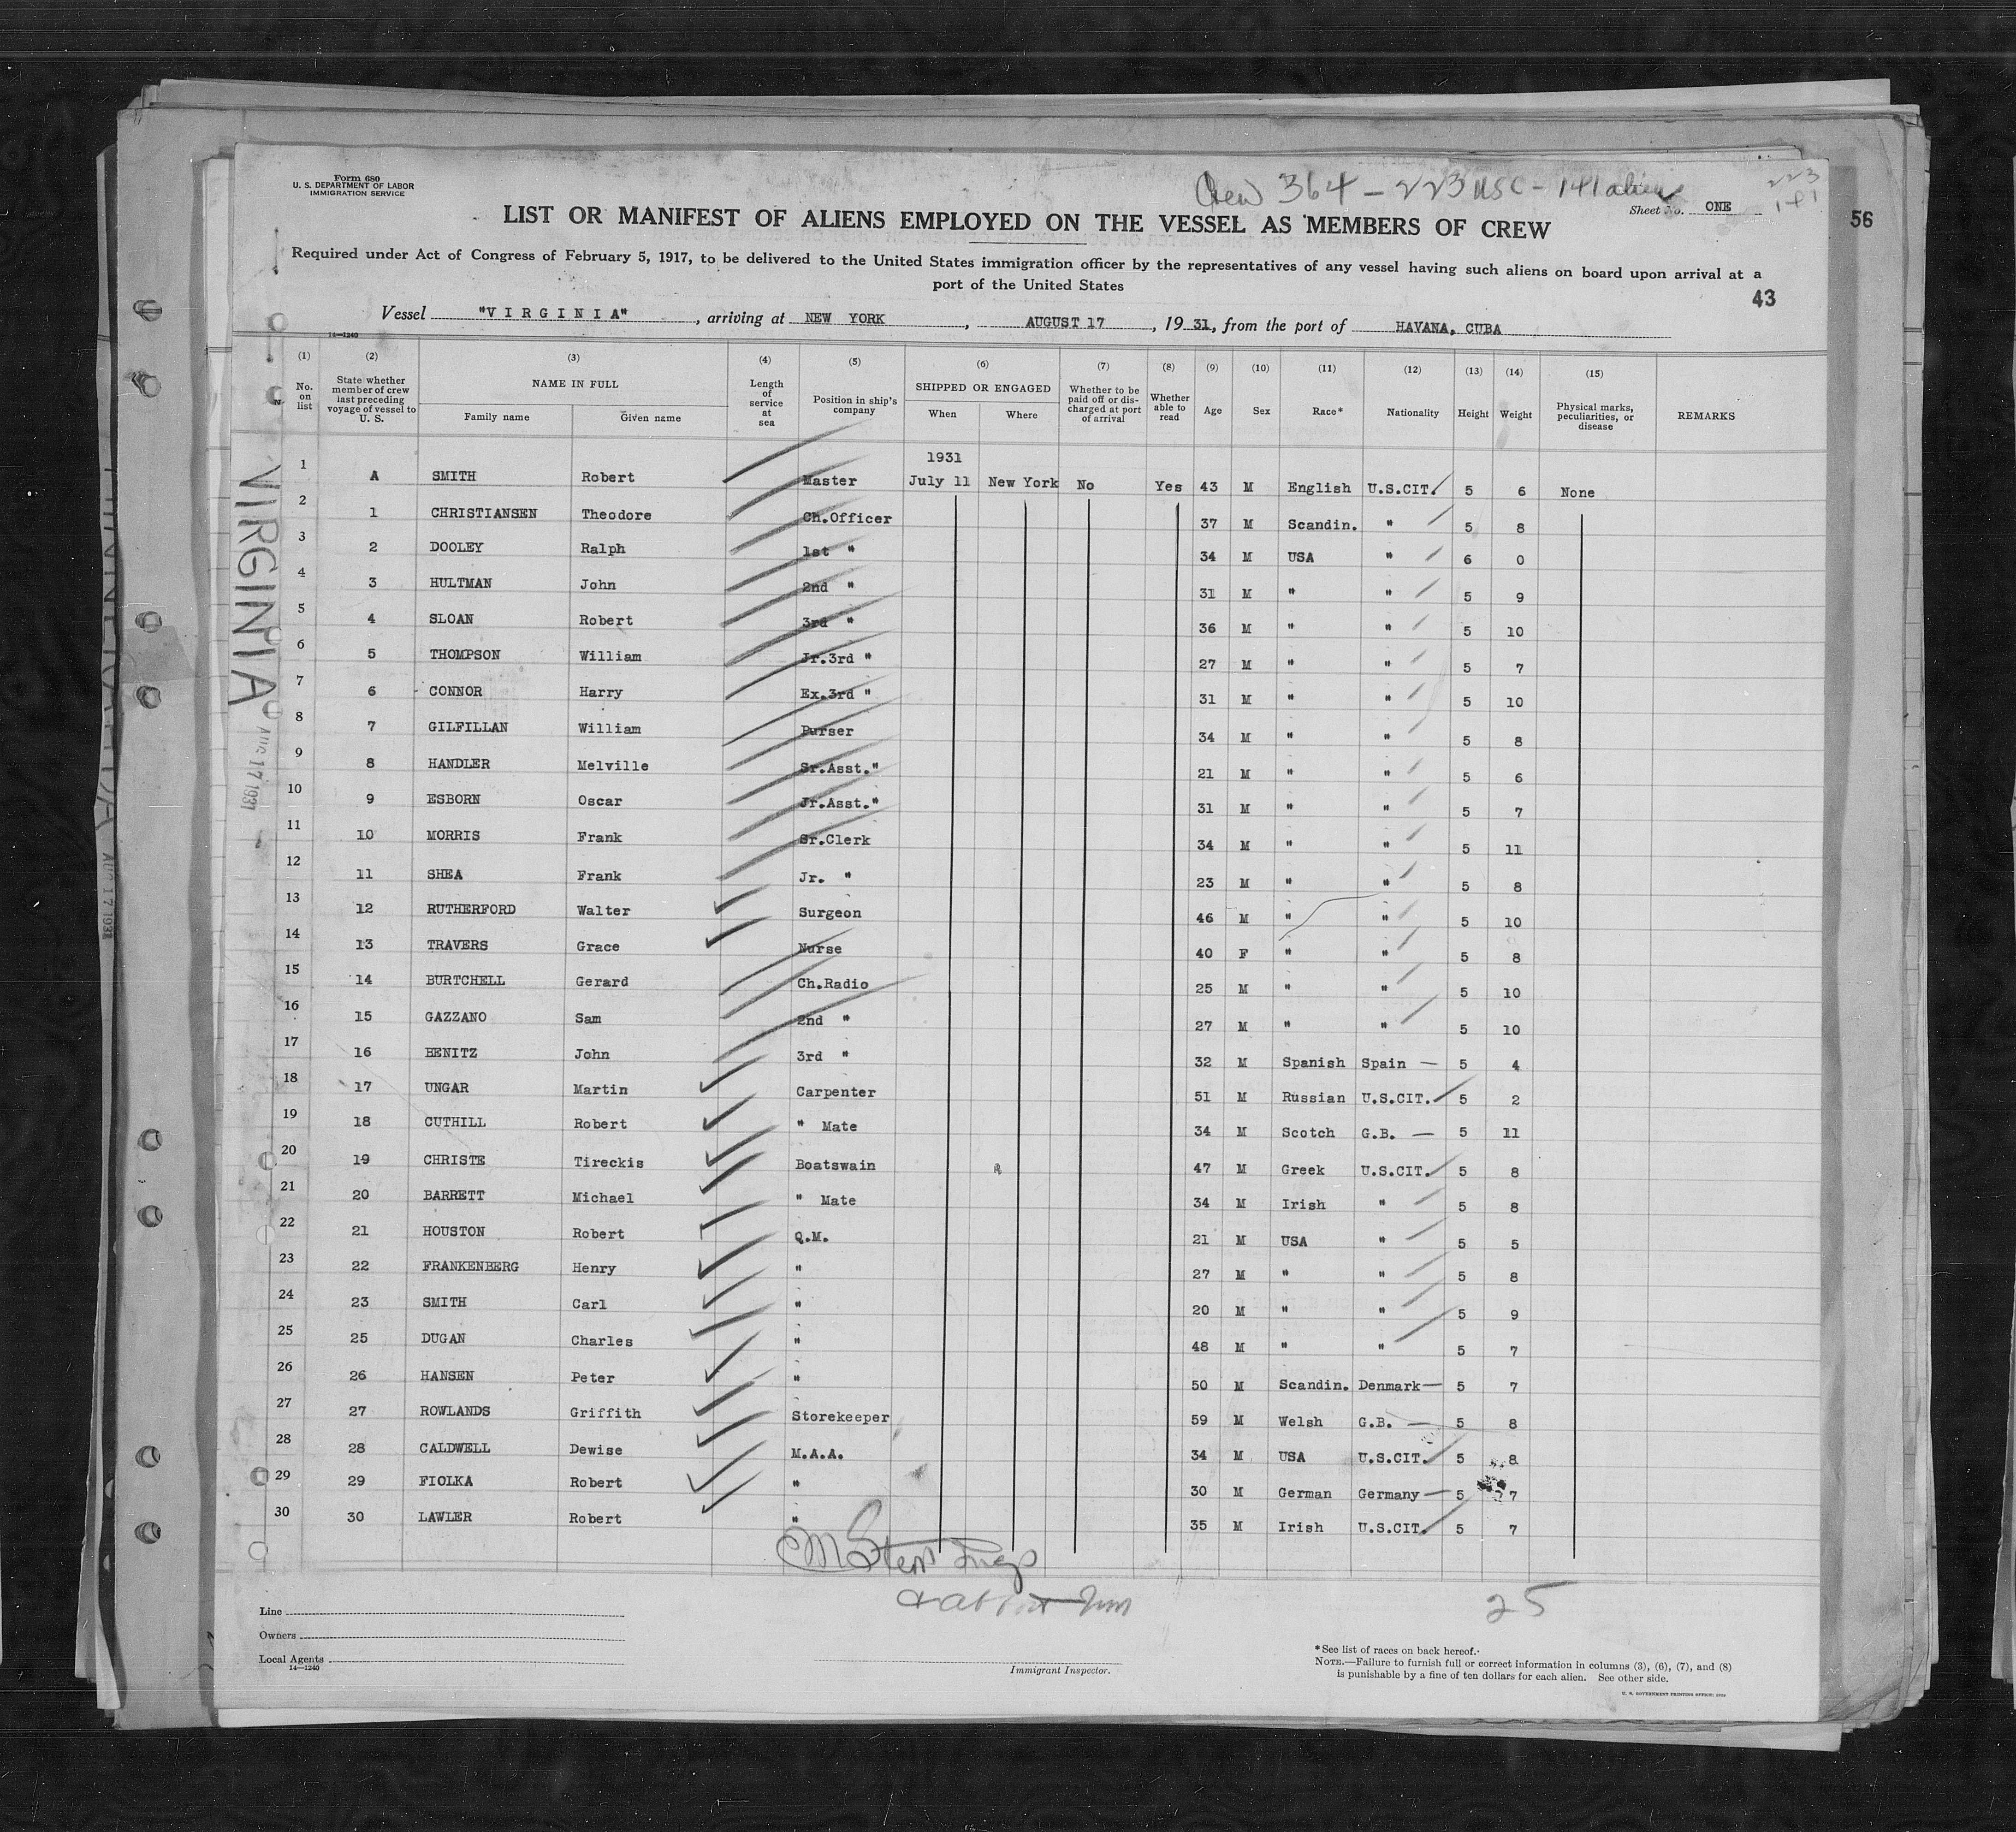 Form 680
U. S. DEPARTMENT OF LABOR
IMMIGRATION SERVICE
Crew 364 - 223 USC - 141 aliens
223
141
Sheet No. ONE
56
LIST OR MANIFEST OF ALIENS EMPLOYED ON THE VESSEL AS MEMBERS OF CREW
Required under Act of Congress of February 5, 1917, to be delivered to the United States immigration officer by the representatives of any vessel having such aliens on board upon arrival at a
port of the United States
43
Vessel "VIRGINIA", arriving at NEW YORK, AUGUST 17, 1931, from the port of HAVANA, CUBA
14—1240
(1) (2) (3) (4) (5) (6) (7) (8) (9) (10) (11) (12) (13) (14) (15)
No. on list State whether member of crew last preceding voyage of vessel to U. S. NAME IN FULL Family name Given name Length of service at sea Position in ship's company SHIPPED OR ENGAGED When Where Whether to be paid off or discharged at port of arrival Whether able to read Age Sex Race* Nationality Height Weight Physical marks, peculiarities, or disease REMARKS
1931
1 A SMITH Robert Master July 11 New York No Yes 43 M English U.S.CIT. 5 6 None
2 1 CHRISTIANSEN Theodore Ch.Officer 37 M Scandin. " 5 8
3 2 DOOLEY Ralph 1st " 34 M USA " 6 0
4 3 HULTMAN John 2nd " 31 M " " 5 9
5 4 SLOAN Robert 3rd " 36 M " " 5 10
6 5 THOMPSON William Jr.3rd " 27 M " " 5 7
7 6 CONNOR Harry Ex.3rd " 31 M " " 5 10
8 7 GILFILLAN William Purser 34 M " " 5 8
9 8 HANDLER Melville Sr.Asst." 21 M " " 5 6
10 9 ESBORN Oscar Jr.Asst." 31 M " " 5 7
11 10 MORRIS Frank Sr.Clerk 34 M " " 5 11
12 11 SHEA Frank Jr. " 23 M " " 5 8
13 12 RUTHERFORD Walter Surgeon 46 M " " 5 10
14 13 TRAVERS Grace Nurse 40 F " " 5 8
15 14 BURTCHELL Gerard Ch.Radio 25 M " " 5 10
16 15 GAZZANO Sam 2nd " 27 M " " 5 10
17 16 BENITZ John 3rd " 32 M Spanish Spain — 5 4
18 17 UNGAR Martin Carpenter 51 M Russian U.S.CIT. 5 2
19 18 CUTHILL Robert " Mate 34 M Scotch G.B. — 5 11
20 19 CHRISTE Tireckis Boatswain 47 M Greek U.S.CIT. 5 8
21 20 BARRETT Michael " Mate 34 M Irish " 5 8
22 21 HOUSTON Robert Q.M. 21 M USA " 5 5
23 22 FRANKENBERG Henry " 27 M " " 5 8
24 23 SMITH Carl " 20 M " " 5 9
25 25 DUGAN Charles " 48 M " " 5 7
26 26 HANSEN Peter " 50 M Scandin. Denmark — 5 7
27 27 ROWLANDS Griffith Storekeeper 59 M Welsh G.B. — 5 8
28 28 CALDWELL Dewise M.A.A. 34 M USA U.S.CIT. 5 8
29 29 FIOLKA Robert " 30 M German Germany — 5 7
30 30 LAWLER Robert " 35 M Irish U.S.CIT. 5 7
VIRGINIA
AUG 17 1931
AUG 17 1931
25
Line
Owners
Local Agents
14—1240
Immigrant Inspector.
*See list of races on back hereof.
NOTE.—Failure to furnish full or correct information in columns (3), (6), (7), and (8)
is punishable by a fine of ten dollars for each alien. See other side.
U. S. GOVERNMENT PRINTING OFFICE: